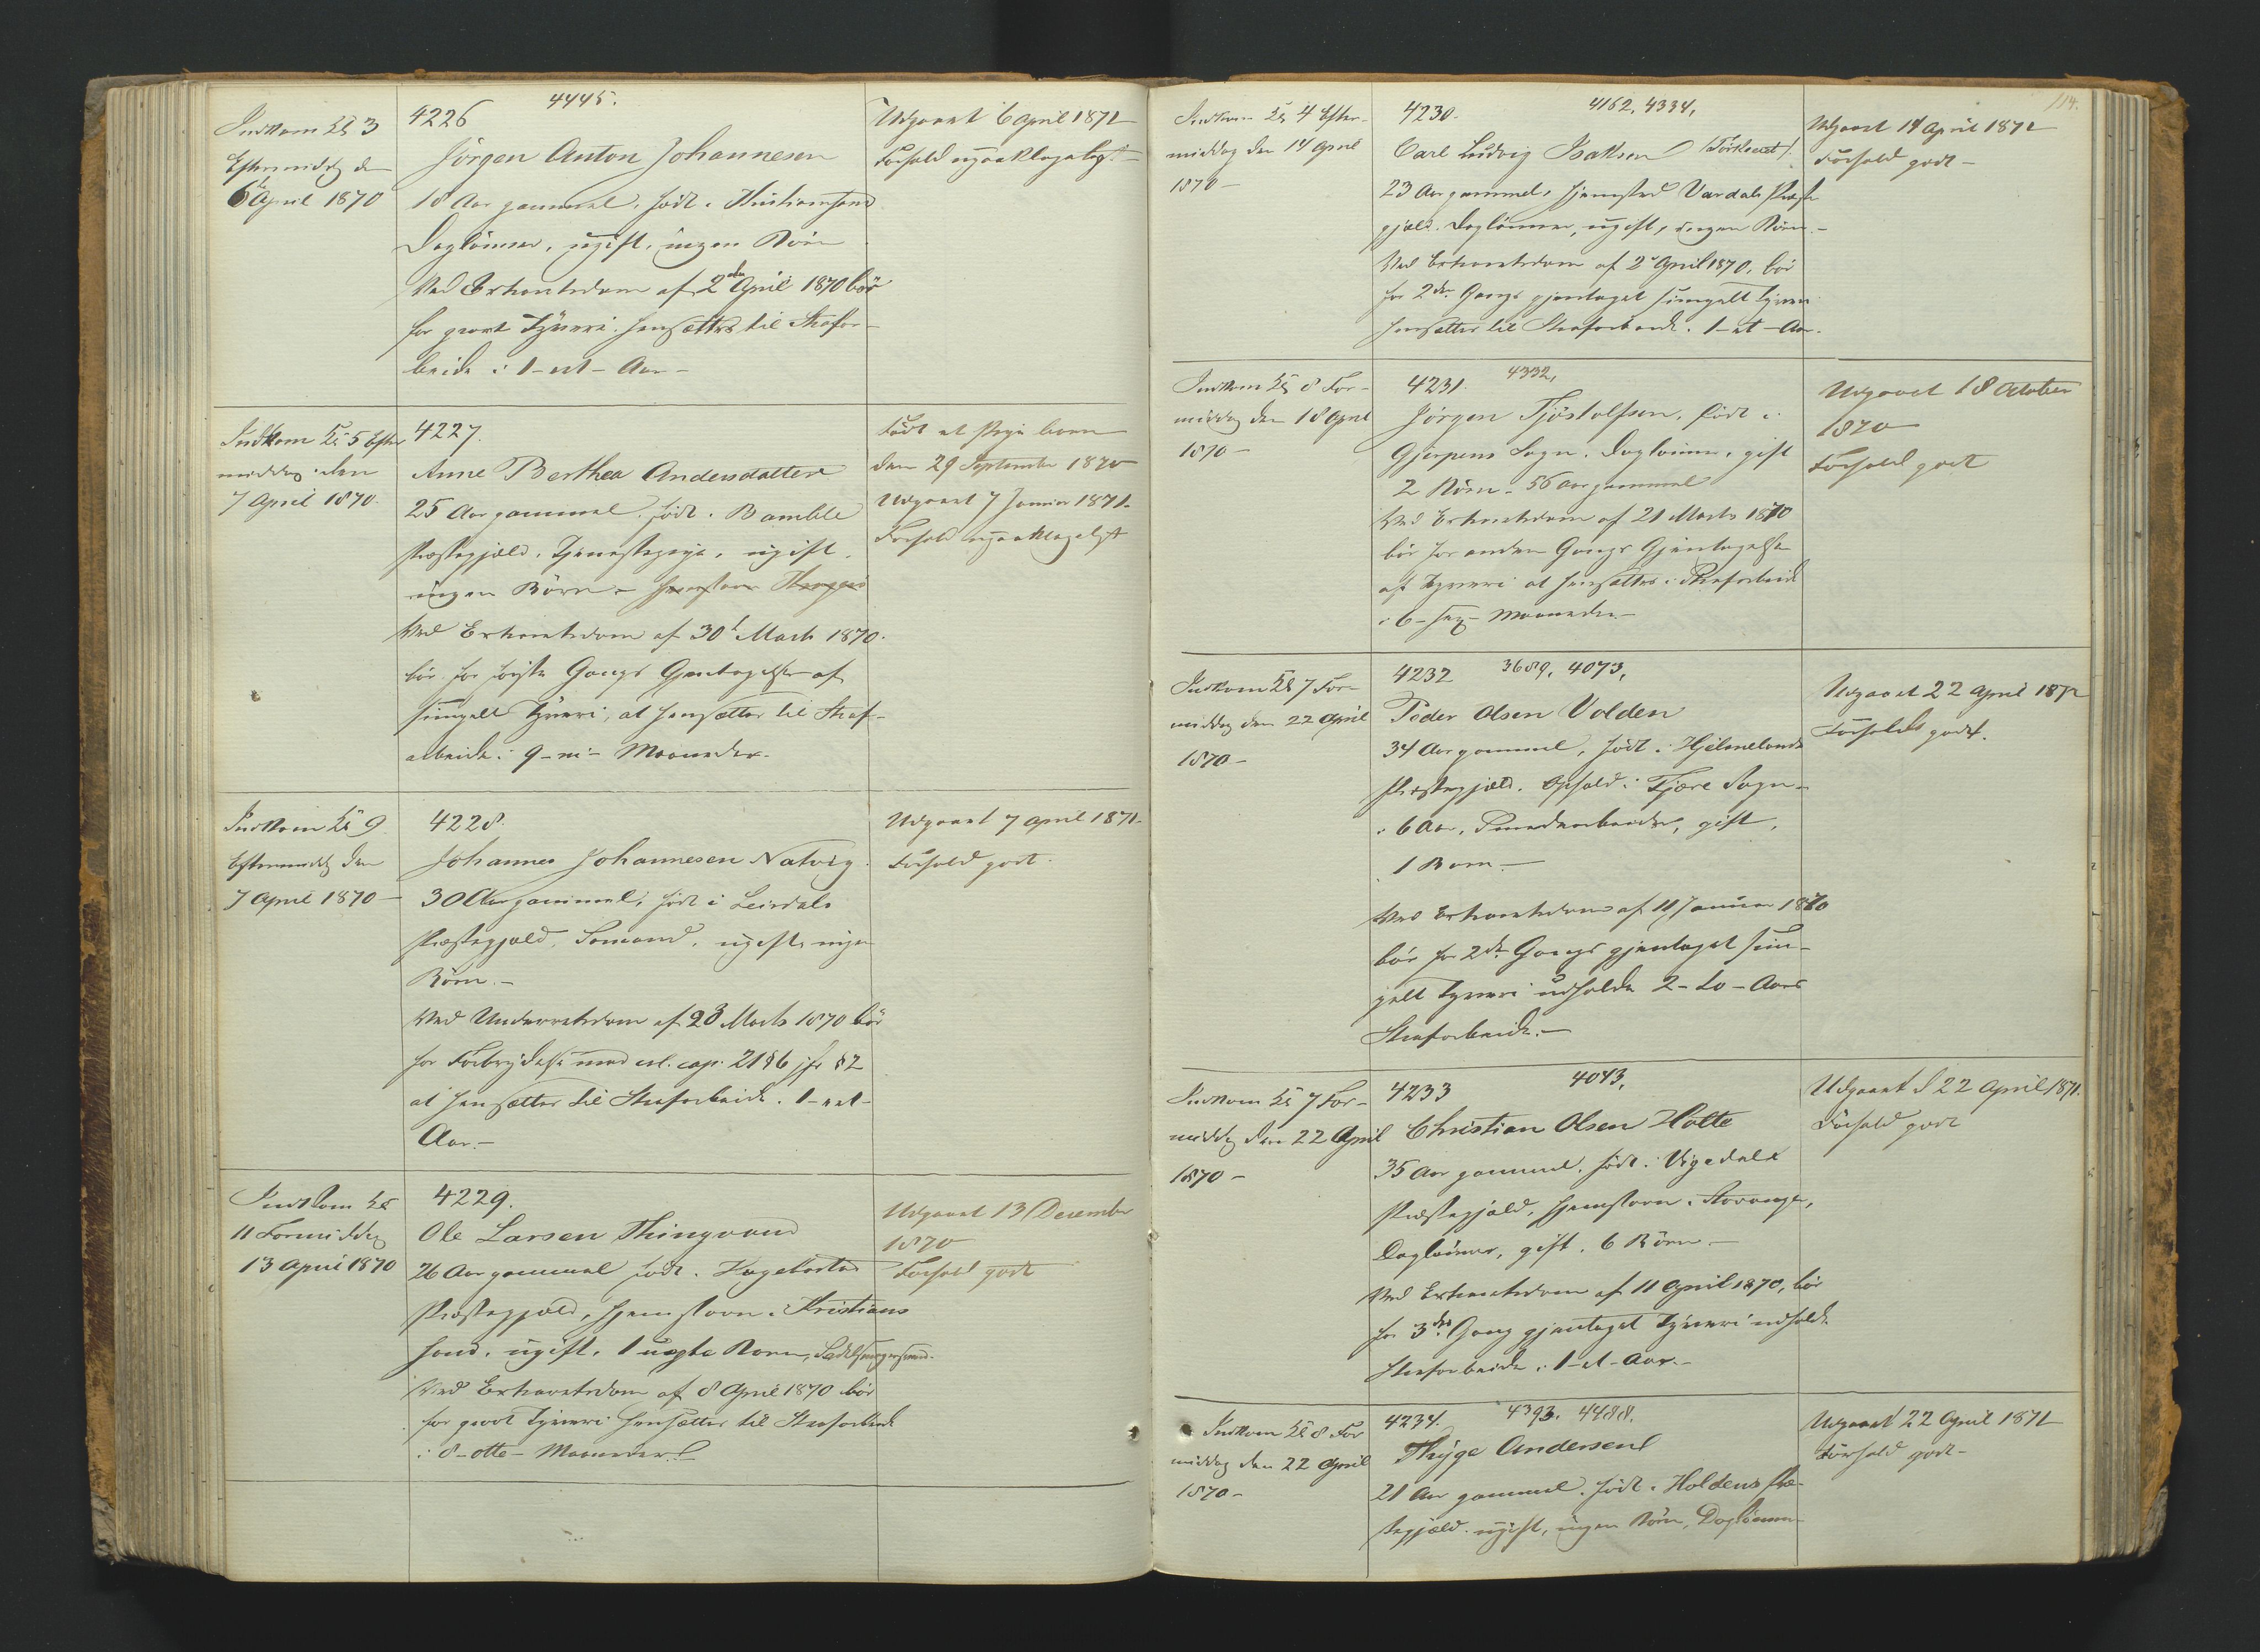 Indkom Kl 3
Eftermiddg d
6 April 1870
4226 4445.
Jörgen Anton Johannesen
18 Aar gammel, født i Kristiansand
Daglönner, ugift, ingen Börn
Ved Extraretsdom af 2den April 1870 bör
for grovt Tyveri hensættes til Strafar-
beide i 1 - et - Aar -
Udgaaet 6 April 1871
Forhold upaaklageligt -
Indkom Kl 5 Efter
middag den
7 April 1870.
4227.
Anne Berthea Andersdatter
25 Aar gammel, født i Bamble
Præstegjæld, Tjenestepige, ugift,
ingen Börn - Hjemstavn
Ved Extraretsdom af 30t Marts 1870.
bör for förste Gangs Gjentagelse af
simpelt Tyveri, at hensættes til Straf-
arbeide i 9 - ni - Maaneder.
Født et Pige barn
den 29 September 1870
Udgaaet 7 Januar 1871.
Forhold upaaklageligt
Indkom Kl 9
Eftermiddg den
7 April 1870 -
4228.
Johannes Johannesen Natvig.
30 Aar gammel, født i Leirdals
Præstegjæld, Sömand, ugift, ingen
Börn. -
Ved Underretsdom af 23 Marts 1870 bör
for Forbrydelse mod crl. cap. 21 § 6 jfr § 2
at hensættes til Strafarbeide i 1 - eet -
Aar. -
Udgaaet 7 April 1871.
Forhold godt.
Indkom Kl
11 Formiddag
13 April 1870
4229.
Ole Larsen Thingvand
26 Aar gammel født i Hægebostad
Præstegjæld, Hjemstavn i Kristians
sand, ugift, 1 uægte Barn, Sadelmagersvend.
Ved Extraretsdom af 8 April 1870 bör
for grovt Tyveri hensættes til Strafarbeide
i 8 - otte - Maaneder.
Udgaaet 13 December
1870
Forhold godt
114.
Indkom Kl 4 Efter-
middag den 14 April
1870 -
4230. 4162, 4334,
Carl Ludvig Isaksen
23 Aar gammel, Hjemsted Vardals Præste
gjæld. Daglönner, ugift, ingen Börn. -
Ved Extraretsdom af 2 April 1870, bör
for 2den Gangs gjentaget simpelt Tyveri
hensættes til Strafarbeide i 1 - et - Aar.
Udgaaet 14 April 1871
Forhold godt -
Indkom Kl 8 For-
middag den 18 April
1870 -
4231. 4332,
Jörgen Tjöstolfsen, født i
Gjerpens Sogn. Daglönner, gift
2 Börn - 56 Aar gammel
Ved Extraretsdom af 21 Marts 1870
bör for anden Gangs Gjentagelse
af Tyveri at hensættes i Strafarbeide
i 6 - sex - Maaneder. -
Udgaaet 18 October
1870
Forhold godt
Indkom Kl 7 For-
middag den 22 April
1870 -
4232 3689, 4073,
Peder Olsen Volden
34 Aar gammel, født i Hjelmelands
Præstegjæld. Ophold i Fjære Sogn -
i 6 Aar, gift,
1 Barn. -
Ved Extraretsdom af 11 Januar 1870
bör for 2den Gangs gjentaget sim-
pelt Tyveri udholde 2 - to - Aars
Strafarbeide. -
Udgaaet 22 April 1872
Forhold godt.
Indkom Kl 7 For-
middg den 22 April
1870 -
4233 4043,
Christian Olsen Holte
35 Aar gammel, født i Vigedals
Præstegjæld, Hjemstavn i Stavanger,
Daglönner, gift, 6 Börn -
Ved Extraretsdom af 11 April 1870, bör
for 3die Gang gjentaget Tyveri udholde
Strafarbeide i 1 - et - Aar. -
Udgaaet d 22 April 1871.
Forhold godt
Indkom Kl 8 For
middag den 22 April
1870 -
4234. 4393. 4488.
Thyge Andersen
21 Aar gammel, født i Holdens Præ-
stegjæld ugift, ingen Börn, Daglönner
Udgaaet 22 April 1871
Forhold godt -